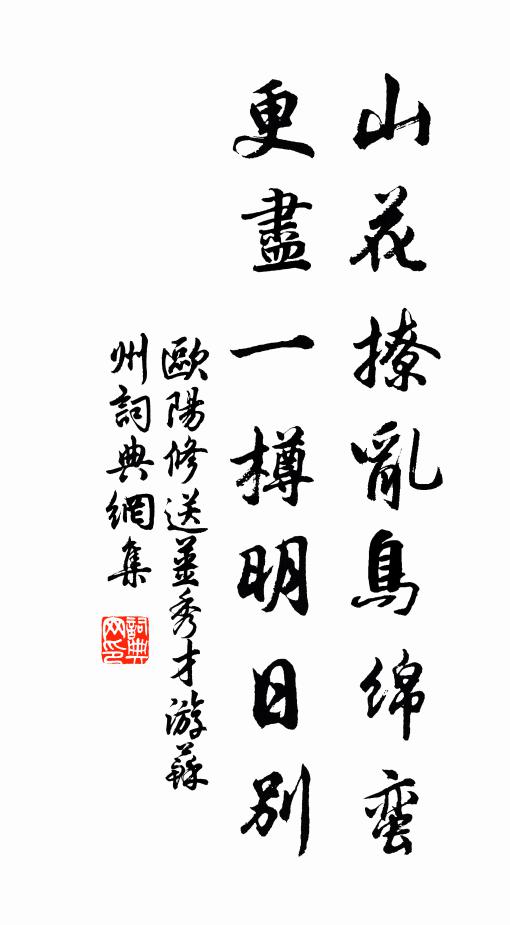 山花撩亂鳥綿蛮
更盡一樽明日別
歐陽修送姜秀才游蘇
州詞典網集
詞典网印